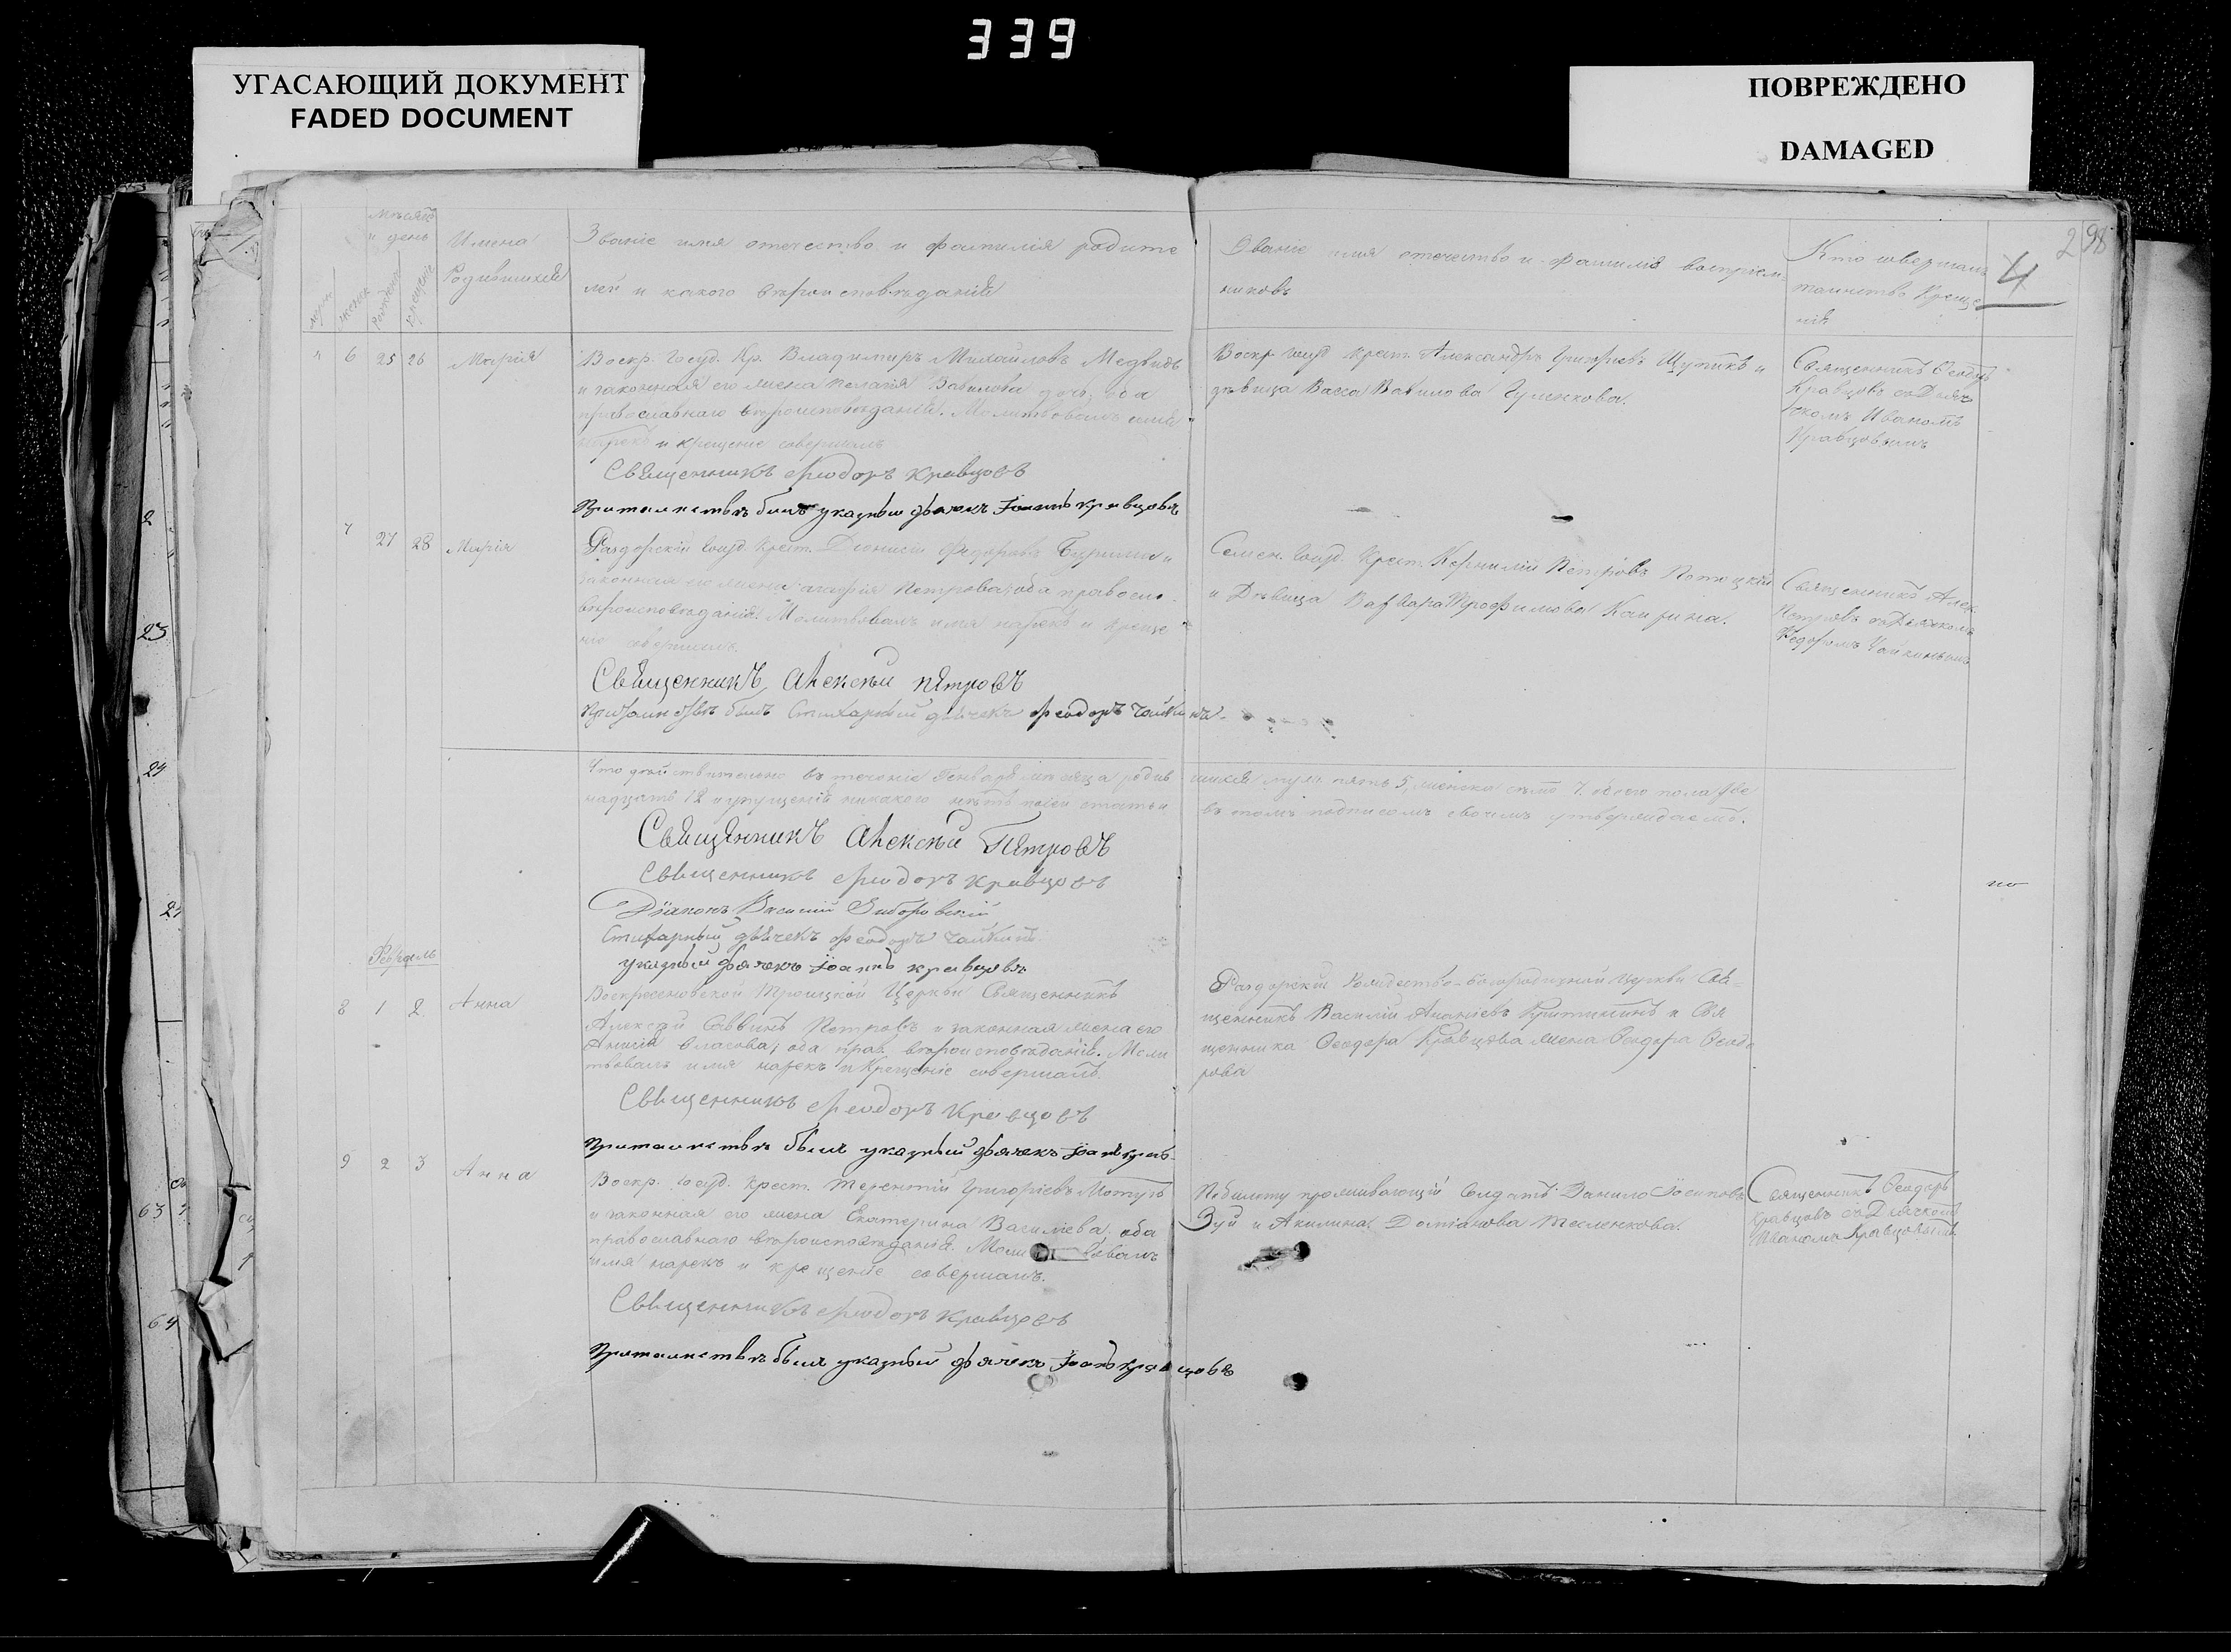 339
УГАСАЮЩИЙ ДОКУМЕНТ
FADED DOCUMENT
ПОВРЕЖДЕНО
DAMAGED
298
4
мѣсяцъ
и день
муж
женск
рожденія
крещенія
Имена
Родившихся
Званіе имя отечество и фамилія родите
лей и какого вѣроисповѣданія
Званіе имя отечество и фамилія воспріем-
никовъ
Кто совершалъ
таинство Креще
нія
6 25 26 Марія
Воскр. Госуд. Кр. Владимиръ Михайловъ Медвидь
и законная его жена Пелагія Вавилова оба
православнаго вѣроисповѣданія. Молитвовалъ имя
нарекъ и крещеніе совершалъ
Священникъ Феодоръ Кравцовъ
При таинствѣ былъ указный дьячекъ Іоаннъ Кравцовъ
Воскр госуд крест. Александръ Григорьевъ Щупикъ и
дѣвица Васса Вавилова Гуленкова.
Священникъ Феодоръ
Кравцовъ съ Дьяч
комъ Иваномъ
Кравцовымъ
7 27 28 Марія
Раздорскій Госуд. Крест. Діонисій Федоровъ Бурима и
законная его жена Агафія Петрова; оба правосла
вѣроисповѣданія. Молитвовалъ имя нарекъ и креще
ніе совершалъ.
Священникъ Алексѣй Петровъ
При таинствѣ былъ Стихарный дьячекъ Феодоръ Чайкинъ
Госуд. Крест. Корнилій Петровъ
и Дѣвица Варвара Трофимова
Священникъ Алек.
Петровъ съ Дьячкомъ
Федоромъ Чайкинымъ
Что дѣйствительно въ теченіе Генваря мѣсяца родив
шихся муж. пять 5, женска семь 7. обоего пола две
надцать 12 и упущенія никакого нѣтъ по сей статьи
въ томъ подписомъ своимъ утверждаемъ.
Священникъ Алексѣй Петровъ
Священникъ Феодоръ Кравцовъ
Діаконъ Василій
Стихарный дьячекъ Феодоръ Чайкинъ
указный дьячекъ Іоаннъ Кравцовъ
но
Февраль
8 1 2 Анна
Воскресеновской Троицкой Церкви Священникъ
Алексѣй Саввинъ Петровъ и законная жена его
Анисія Власова; оба прав. вѣроисповѣданія. Моли
твовалъ имя нарекъ и Крещеніе совершалъ.
Священникъ Феодоръ Кравцовъ
При таинствѣ былъ указный дьячекъ Іоаннъ Крав
Раздорской Рождество-Богородичной Церкви Свя-
щенникъ Василій Ананіевъ и Свя
щенника Феодора Кравцова жена Феодора Феодо
рова
9 2 3 Анна
Воскр. Госуд. Крест. Терентій Григоріевъ Мотузъ
и законная его жена Екатерина Василіева; оба
православнаго вѣроисповѣданія. Молитвовалъ
имя нарекъ и крещеніе совершалъ.
Священникъ Феодоръ Кравцовъ
При таинствѣ былъ указный дьячекъ Іоаннъ Кравцовъ
По билету проживающій Солдатъ Данило Іосиповъ
Зуй и Акилина Доміанова Тесленкова.
Священникъ Феодоръ
Кравцовъ съ Дьячкомъ
Иваномъ Кравцовымъ
2
23
24
63
64